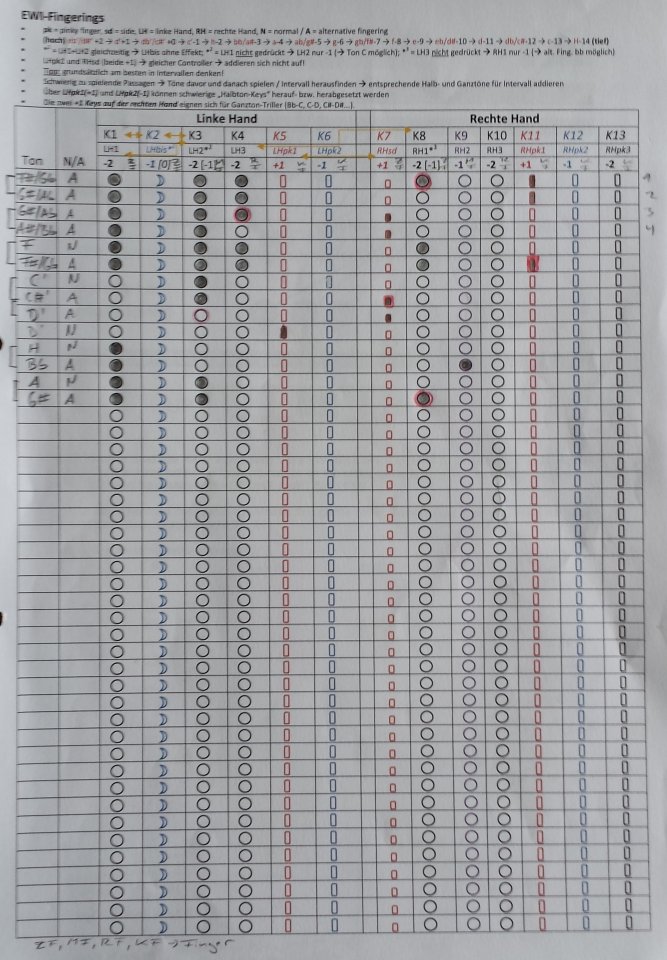 EWI-Fingerings
pk = pinky finger, sd = side, LH = linke Hand, RH = rechte Hand, N = normal / A = alternative fingering
(hoch) +2 → d'+1 → +0 → c'-1 → h-2 → bb/a#-3 → a-4 → ab/g#-5 → g-6 → gb/f#-7 → f-8 → e-9 → eb/d#-10 → d-11 → db/c#-12 → c-13 → H-14 (tief)
= LH1+LH2 gleichzeitig → LHbis ohne Effekt; *² = LH1 nicht gedrückt → LH2 nur -1 (→ Ton C möglich); *³ = LH3 nicht gedrückt → RH1 nur -1 (→ alt. Fing. bb möglich)
LHpk1 und RHsd (beide +1) → gleicher Controller → addieren sich nicht auf!
Tipp: grundsätzlich am besten in Intervallen denken!
Schwierig zu spielende Passagen → Töne davor und danach spielen / Intervall herausfinden → entsprechende Halb- und Ganztöne für Intervall addieren
Über LHpk1(+1) und LHpk2(-1) können schwierige „Halbton-Keys" herauf- bzw. herabgesetzt werden
Die zwei +1 Keys auf der rechten Hand eignen sich für Ganzton-Triller (Bb-C, C-D, C#-D#...).
Linke Hand Rechte Hand
K1 K2 K3 K4 K5 K6 K7 K8 K9 K10 K11 K12 K13
LH1 LHbis LH2 LH3 LHpk1 LHpk2 RHsd RH1 RH2 RH3 RHpk1 RHpk2 RHpk3
Ton N/A -2 -1 [0] -2 [-1] -2 +1 -1 +1 -2 [-1] -1 -2 +1 -1 -2
F#/Gb A 1
G#/Ab A 2
G#/Ab A 3
A#/Bb A 4
F N
F#/Gb A
C' N
C#' A
D' A
D' N
H N
Bb A
A N
G# A
ZF, MF, RF, KF → Finger